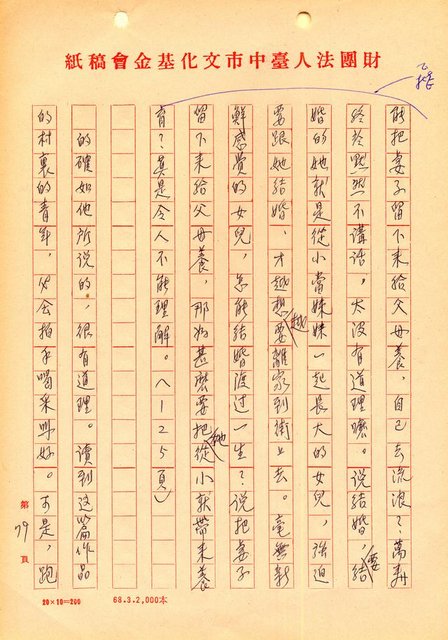 財團法人臺中市文化基金會稿紙
能把妻子留下来給父母養，自己去流浪？萬壽
终於黙然不講话。太没有道理嚒。说结婚，要結
婚的她就是從小當妹妹一起長大的女兒，强迫
要跟她结婚、才越想越要離家到街上去。毫無新
鮮感覺的女兒，怎能结婚渡过一生？说把妻子
留下来给父母養，那为甚麽要把她從小就帶来養
育？真是令人不能理解。〈125頁〉
的確如他所说的，很有道理。读到这篇作品
的村裏的青年，必会拍手喝采叫好。可是，跑
第79頁
20×10=200
68.3.2,000本